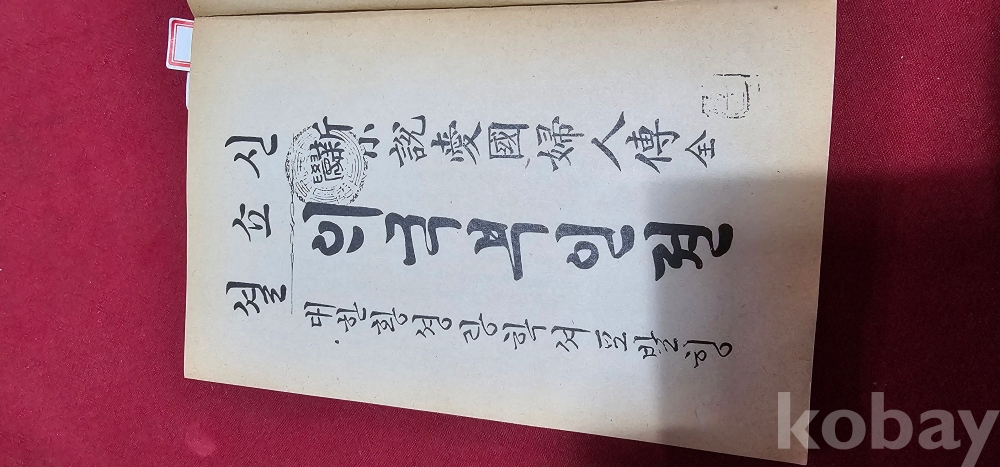 신쇼셜
新小說愛國婦人傳 全
ᄋᆡ국부인젼
대한황셩광학셔포발ᄒᆡᆼ
kobay